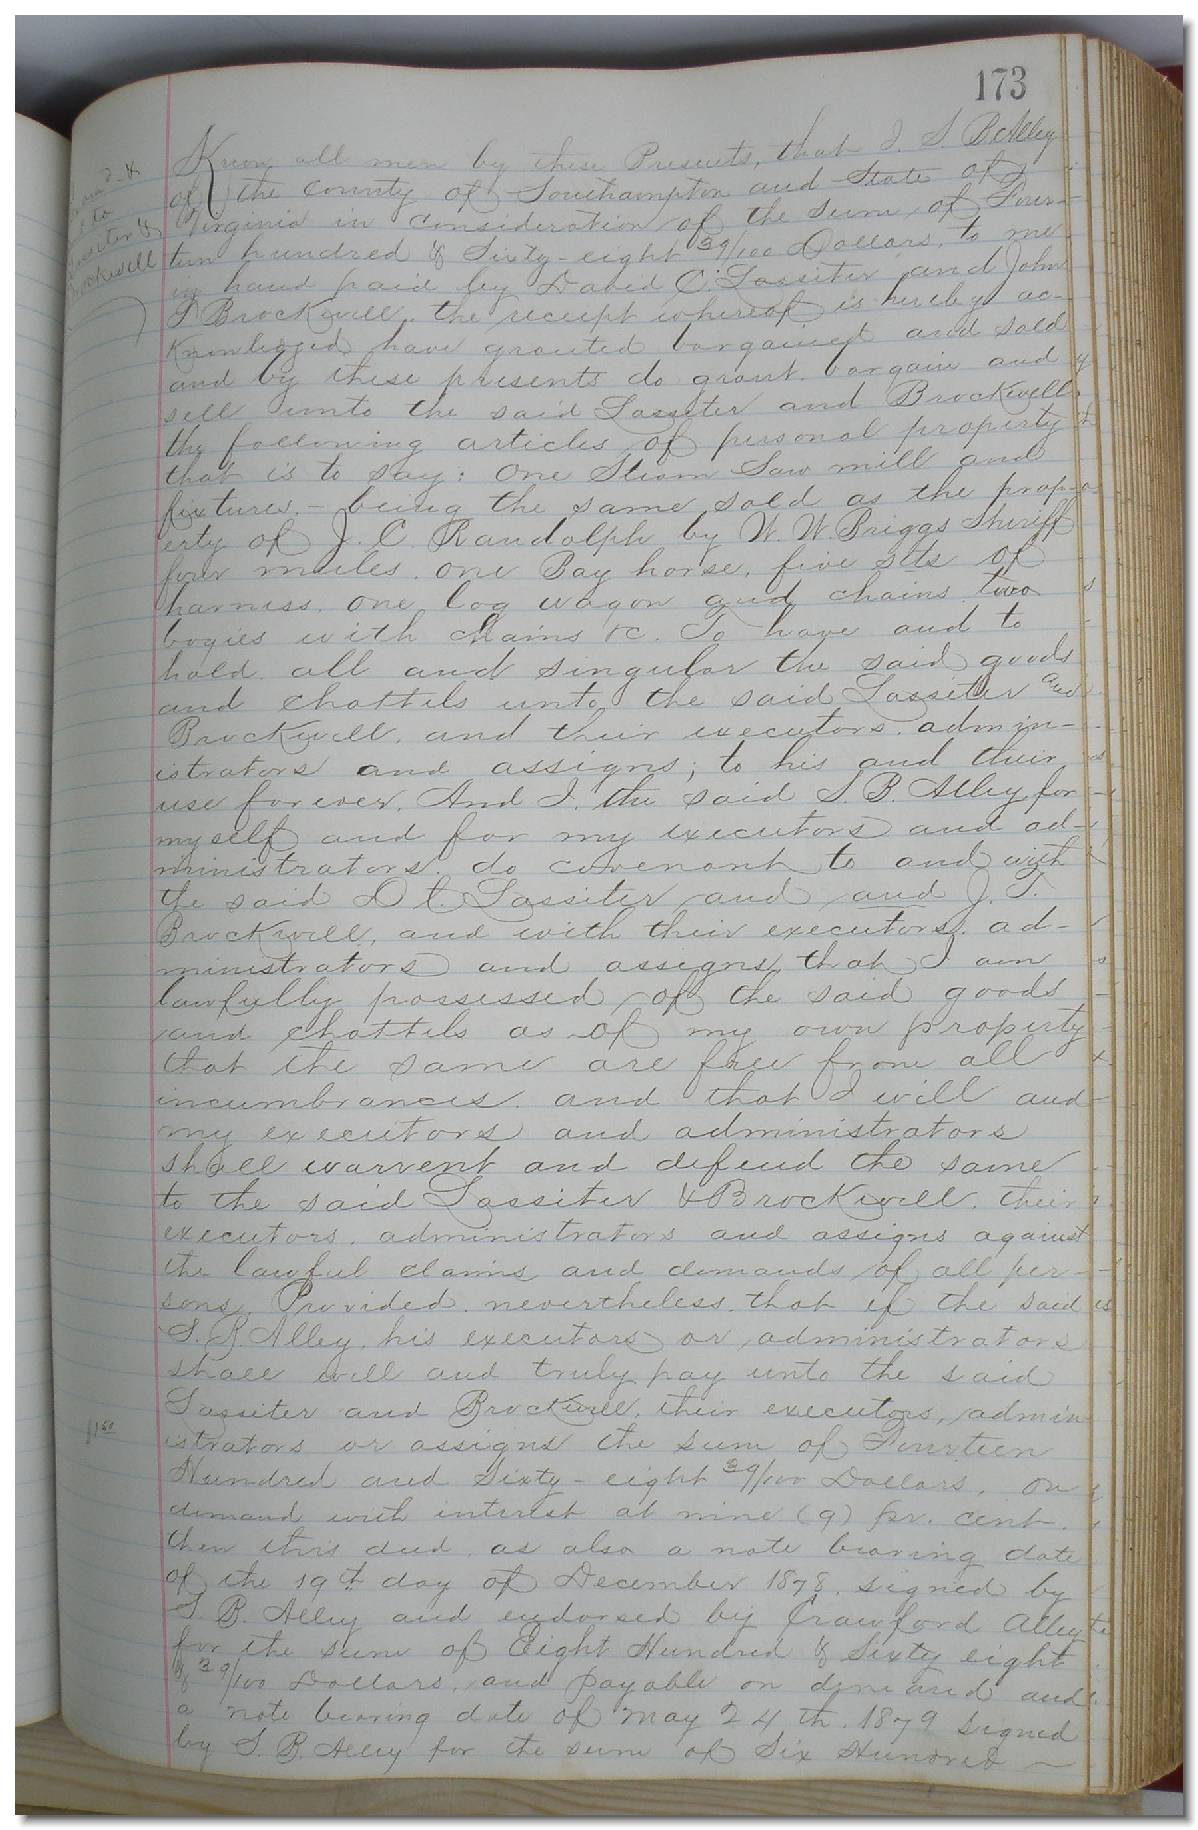 173
Know all men by these Presents, that I. S. B. Alley
of the County of Southampton and State of
Virginia in consideration of the sum of Four-
teen hundred & Sixty-eight 39/100 Dollars, to me
in hand paid by David C. Lassiter and John
T Brockwell. the receipt whereof is hereby ac-
knowledged have granted bargained and sold
and by these presents do grant. bargain and
sell unto the said Lassiter and Brockwell
the following articles of personal property
that is to say: One Steam Saw mill and
fixtures. - being the same sold as the prop-
erty of J. C. Randolph by W. W. Briggs Sheriff
four mules. one Bay horse. five sets of
harness. one log wagon and chains two
bogies with chains &c. To have and to
hold. all and singular the said goods
and chattels unto the said Lassiter and
Brockwell. and their executors. admin-
istrators and assigns; to his and their
use forever. And I. the said S. B. Alley for
myself and for my executors and ad-
ministrators. do covenant to and with
the said D C. Lassiter and and J. T.
Brockwell, and with their executors. ad-
ministrators and assigns, that I am
lawfully possessed of the said goods
and chattels as of my own property
that the same are free from all
incumbrances. and that I will and
my executors and administrators
shall warrent and defend the same
to the said Lassiter & Brockwell. their
executors. administrators and assigns against
the lawful claims and demands of all per-
sons. Provided. nevertheless. that if the said
S. B. Alley. his executors or administrators
shall well and truly pay unto the said
Lassiter and Brockwell. their executors, admin
istrators or assigns the sum of Fourteen
Hundred and Sixty-eight 39/100 Dollars, on
demand with interest at nine (9) pr. cent.
then this deed. as also a note bearing date
of the 19th day of December 1878. signed by
S. B. Alley and endorsed by Crawford Alley
for the sum of Eight Hundred & Sixty eight
& 39/100 Dollars. and payable on demand and
a note bearing date of May 24th. 1879 signed
by S. B. Alley for the sum of Six Hundred